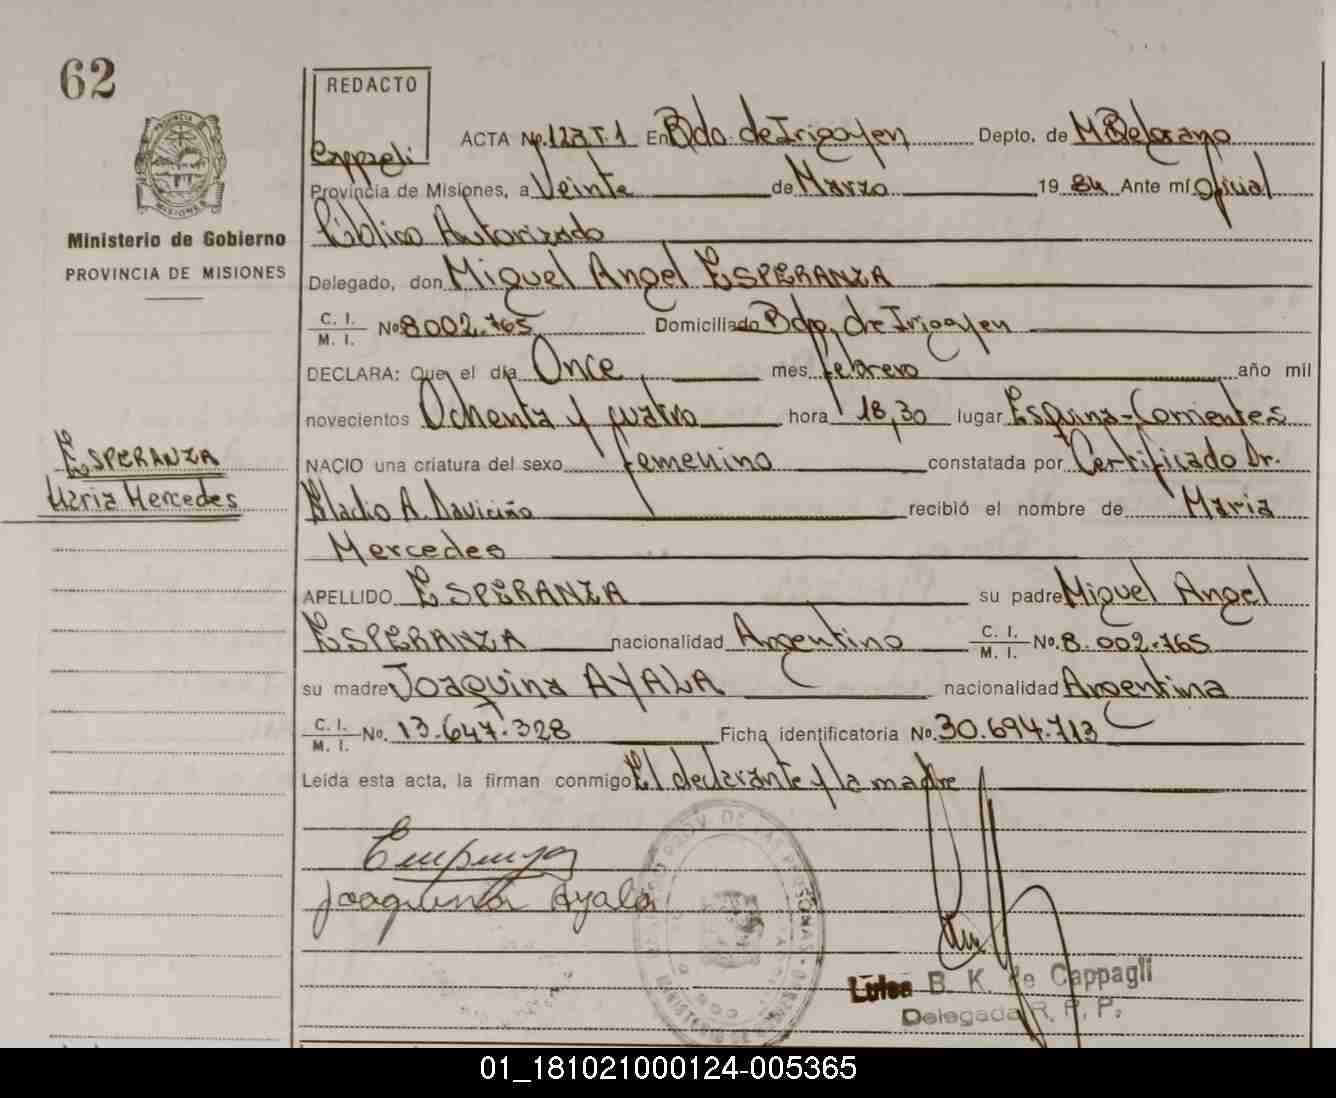 62
REDACTO
Cappagli
ACTA No. 123 T.1 En Bdo. de Irigoyen Depto. de M Belgrano
Provincia de Misiones, a Veinte de Marzo 19 84 Ante mí Oficial
PROVINCIA DE
MISIONES
Ministerio de Gobierno
PROVINCIA DE MISIONES
Público Autorizado
Delegado, don Miguel Angel ESPERANZA
C. I.
M. I. No 8 002.765 Domiciliado Bdo. de Irigoyen
DECLARA: Que el día Once mes febrero año mil
novecientos Ochenta y cuatro hora 18,30 lugar Esquina-Corrientes
NACIO una criatura del sexo femenino constatada por Certificado Dr.
ESPERANZA
Maria Mercedes
Eladio A. Daviciño recibió el nombre de Maria
Mercedes
APELLIDO ESPERANZA su padre Miguel Angel
ESPERANZA nacionalidad Argentino C. I.
M. I. No. 8.002.765
su madre Joaquina AYALA nacionalidad Argentina
C. I.
M. I. No. 13.647.328 Ficha identificatoria No. 30.694.713
Leída esta acta, la firman conmigo El declarante y la madre
Joaquina Ayala
Luisa B. K. de Cappagli
Delegada R. P. P.
01_181021000124-005365